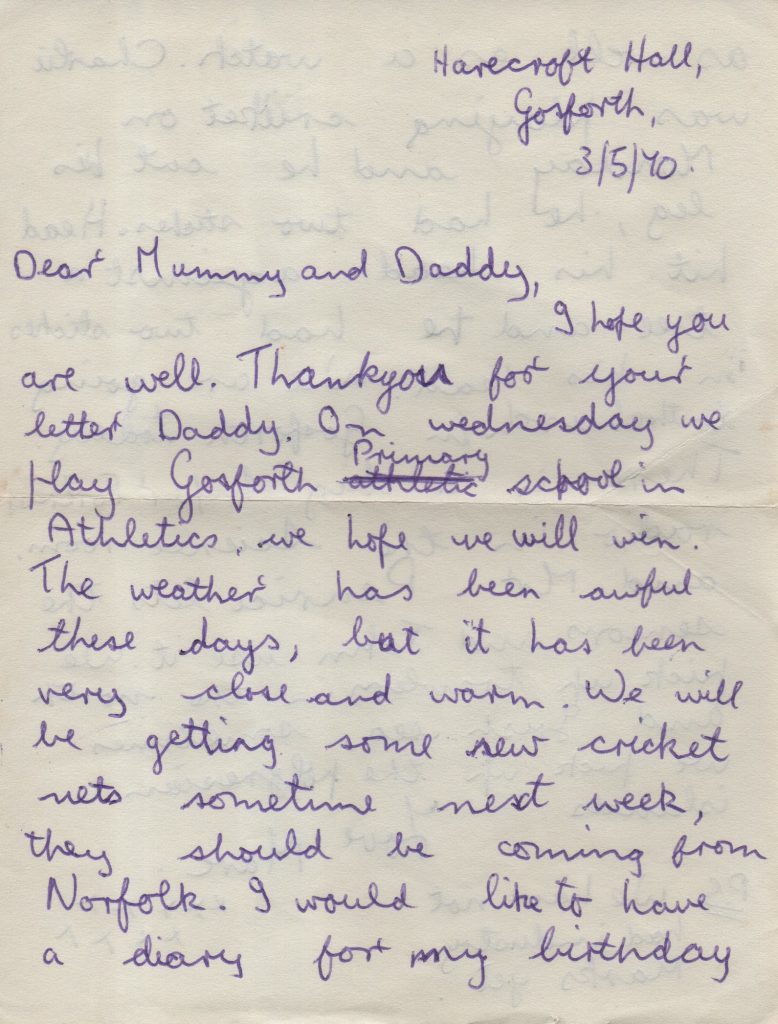 Harecroft Hall,
Gosforth,
3/5/70.
Dear Mummy and Daddy,
I hope you
are well. Thankyou for your
letter Daddy. On wednesday we
play Gosforth athletic Primary school in
Athletics, we hope we will win.
The weather has been awful
these days, but it has been
very close and warm. We will
be getting some new cricket
nets sometime next week,
they should be coming from
Norfolk. I would like to have
a diary for my birthday